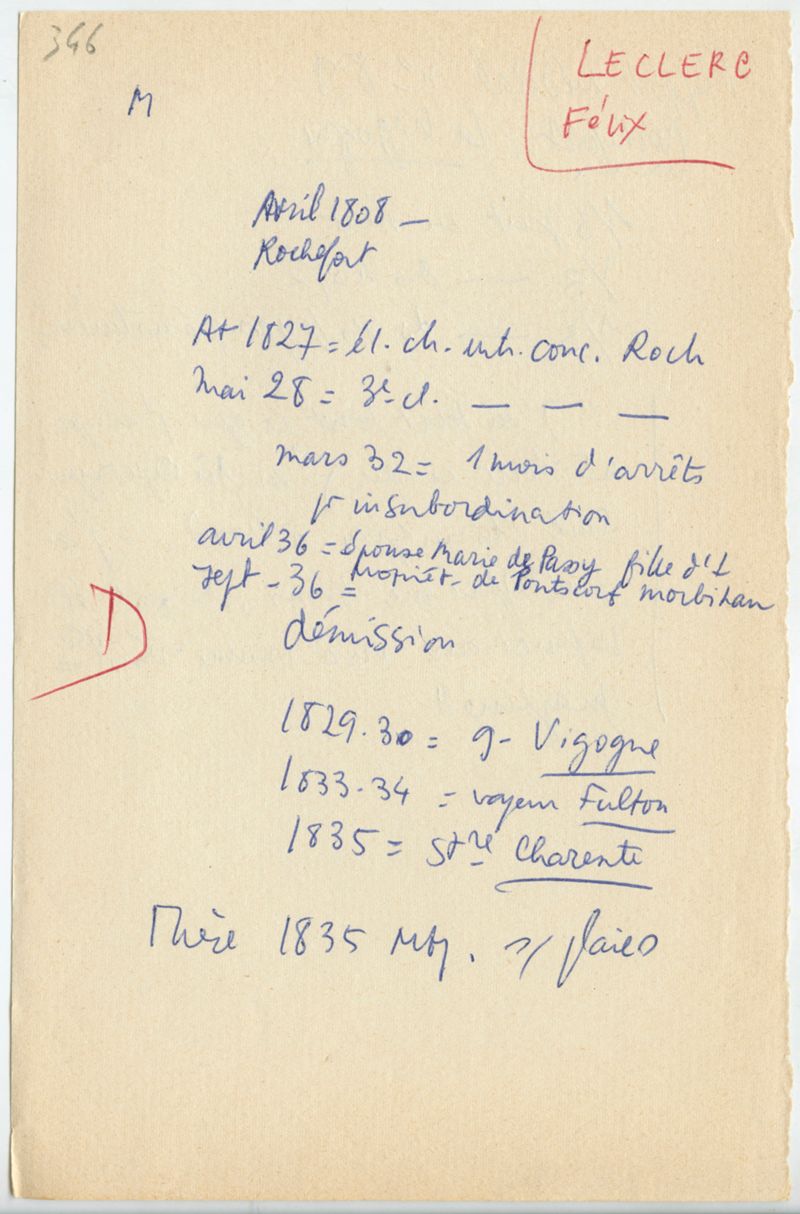 346
M
LECLERC
Félix
Avril 1808 —
Rochefort
At 1827 = él. ch. entr. conc. Roch
mai 28 = 3e cl. — — —
mars 32 = 1 mois d'arrêts
pr insubordination
avril 36 = épouse Marie de Passy fille d'1
propriét. de Pontscorf Morbihan
sept - 36 =
démission
D
1829.30 = g- Vigogne
1833.34 = vapeur Fulton
1835 = stre Charente
Thèse 1835 Mtp. s/ plaies